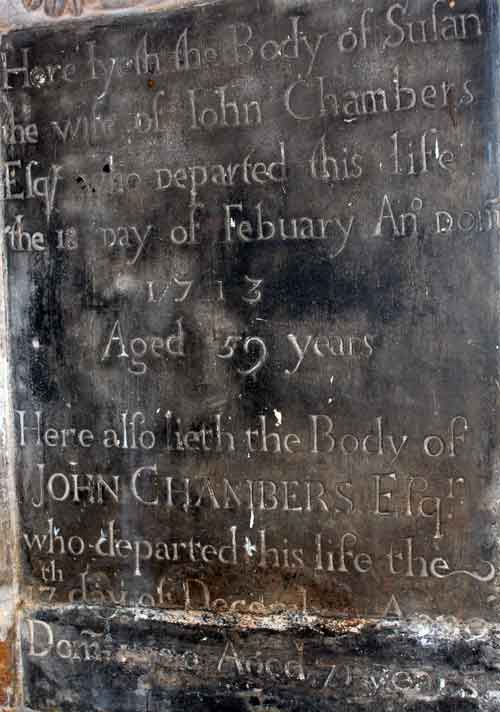 Here lyeth the Body of Suſan
the wife of Iohn Chambers
Eſqr who departed this life
the 18 Day of Febuary Ano Dom
1713
Aged 59 years
Here alſo lieth the Body of
JOHN CHAMBERS Eſqr.
who departed this life the
17th day of Anno
Dom Aged 71 years